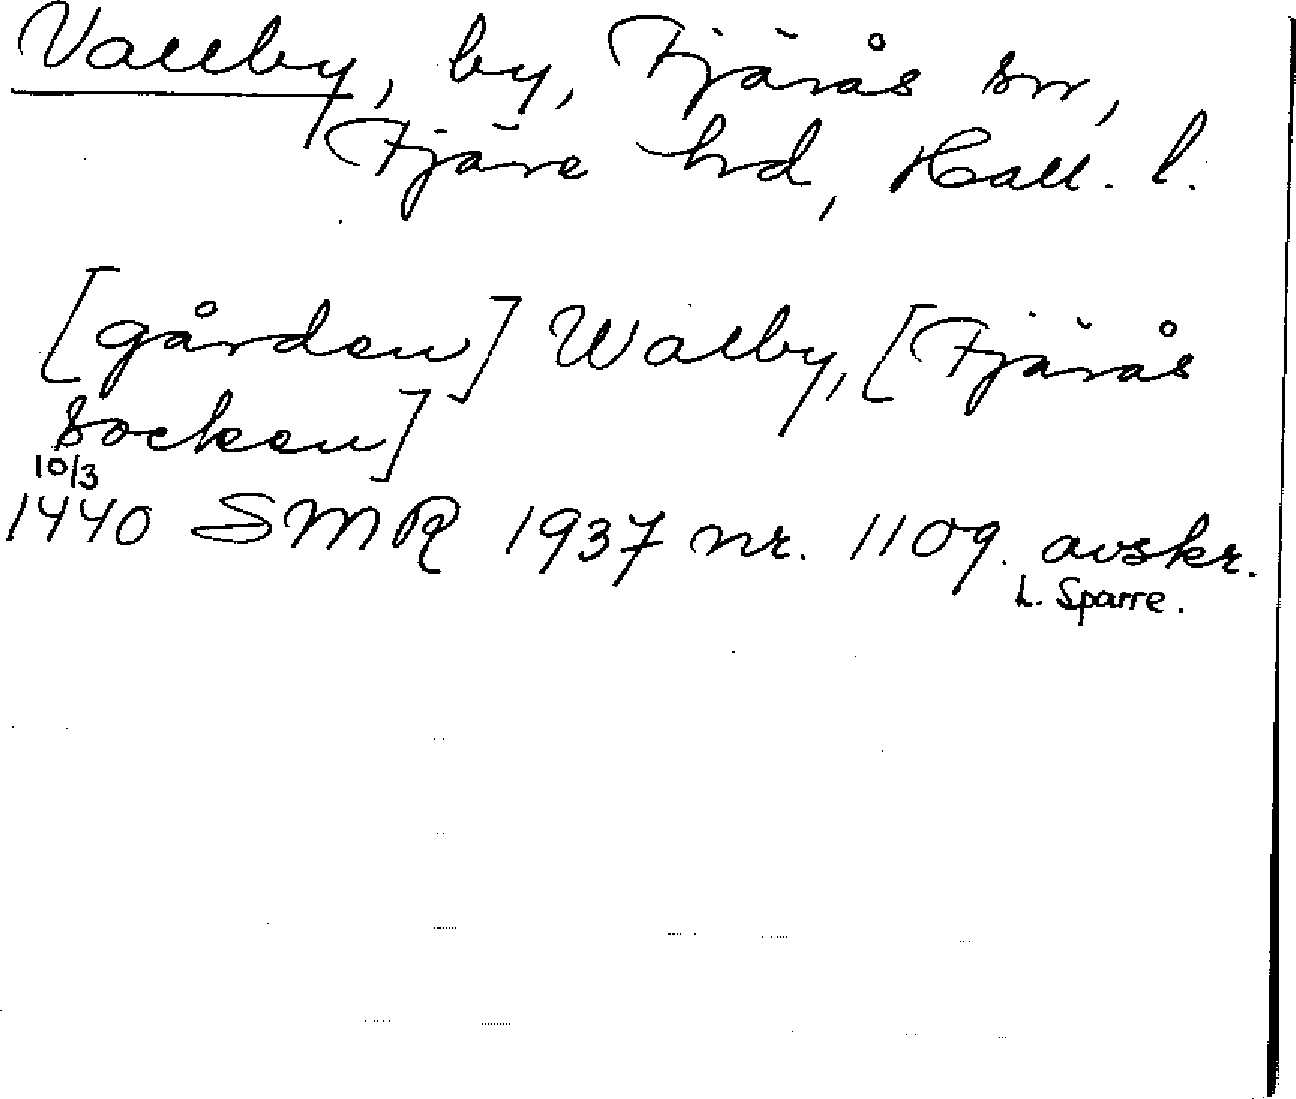 Vallby, by, Fjärås sn,
Fjäre hd, Hall. l.
[gården] Walby, [Fjärås
socken]
10/3
1440 SMR 1937 nr. 1109. avskr.
L. Sparre.